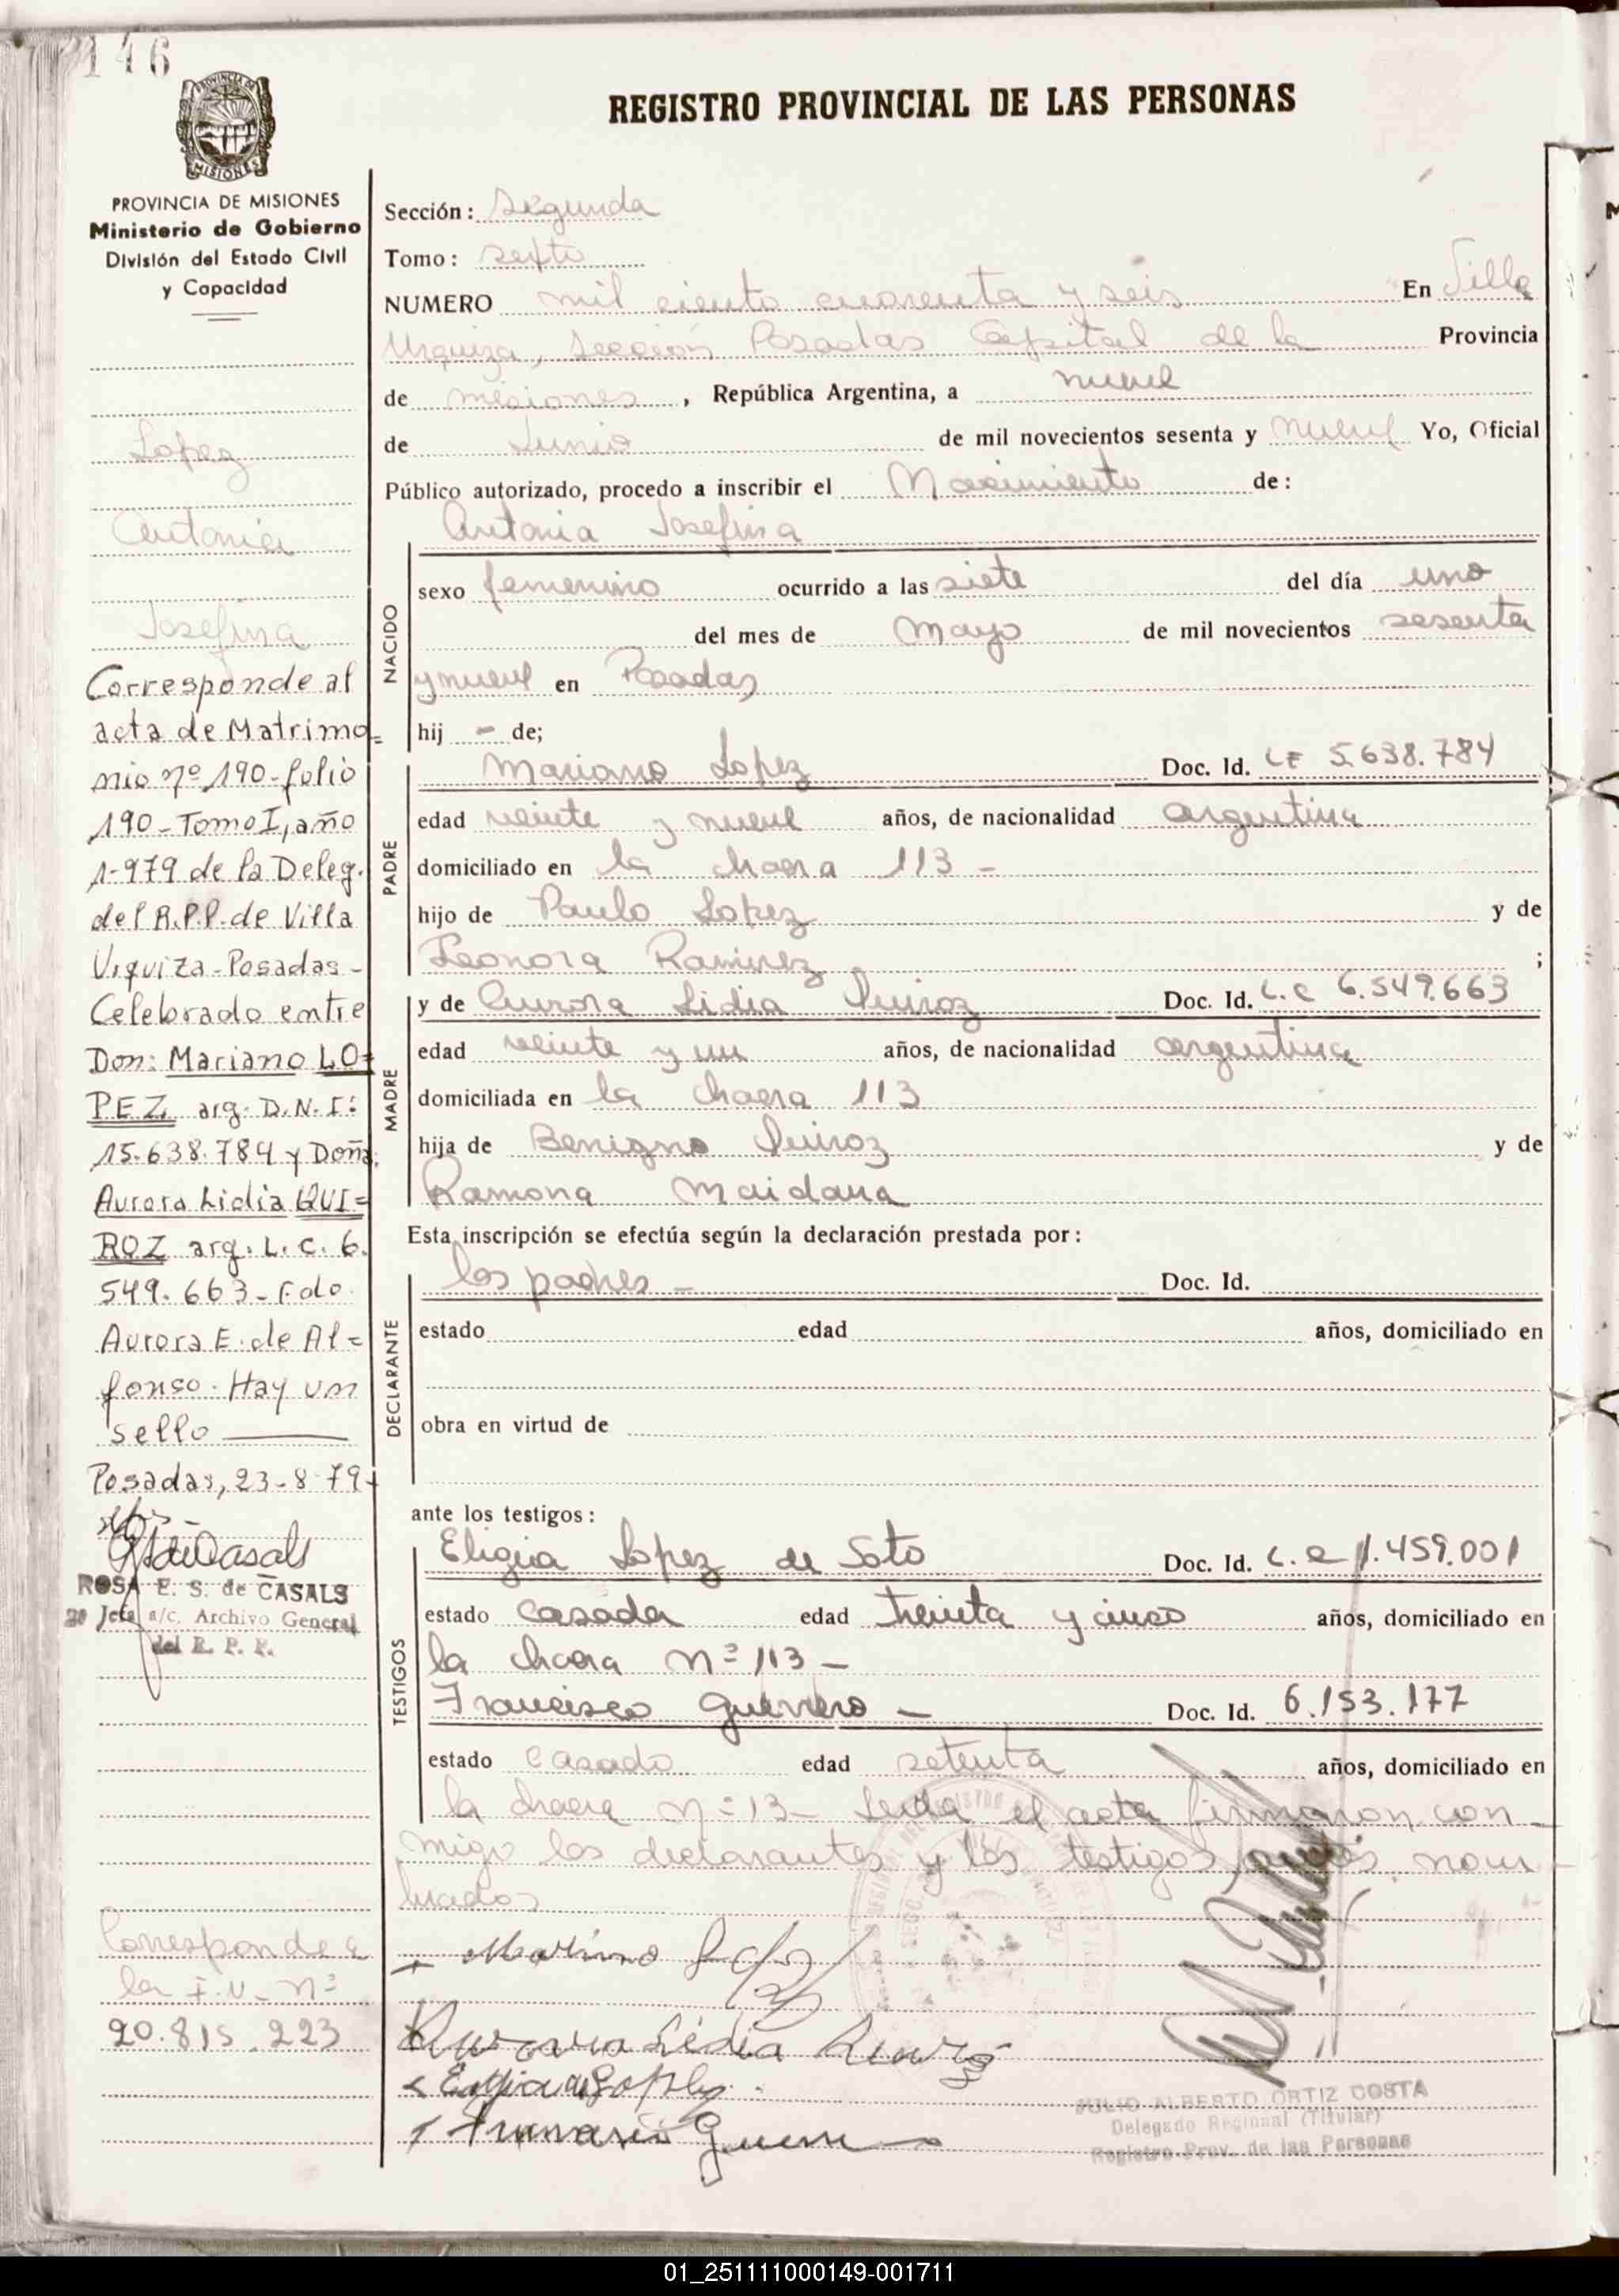 146
REGISTRO PROVINCIAL DE LAS PERSONAS
MISIONES
PROVINCIA DE MISIONES
Ministerio de Gobierno
División del Estado Civil
y Capacidad
Lopez
Antonia
Josefina
Corresponde al
acta de Matrimo=
nio nº 190-folio
190-Tomo I, año
1-979 de la Deleg.
del R.P.P. de Villa
Urquiza-Posadas-
Celebrado entre
Don: Mariano LO=
PEZ arg. D.N.I:
15.638.784 y Doña
Aurora Lidia QUI=
ROZ arg. L.C. 6.
549.663-Fdo.
Aurora E. de Al=
fonso. Hay un
sello
Posadas, 23-8-79-
ROSA E. S. de CASALS
2º Jefe a/c. Archivo General
del R. P. P.
Corresponde a
la I.N- Nº
20.815.223
Sección: Segunda
Tomo: sexto
NUMERO mil ciento cuarenta y seis En Villa
Urquiza, Sección Posadas Capital de la Provincia
de misiones, República Argentina, a nueve
de Junio de mil novecientos sesenta y nueve Yo, Oficial
Público autorizado, procedo a inscribir el Nacimiento de:
Antonia Josefina
NACIDO
sexo femenino ocurrido a las siete del día uno
del mes de Mayo de mil novecientos sesenta
y nueve en Posadas
hij - de;
PADRE
Mariano Lopez Doc. Id. LE 5.638.784
edad veinte y nueve años, de nacionalidad argentina
domiciliado en la chacra 113 -
hijo de Paulo Lopez y de
Leonora Ramirez ;
MADRE
y de Aurora Lidia Quiroz Doc. Id. L.C 6.549.663
edad veinte y un años, de nacionalidad argentina
domiciliada en la chacra 113
hija de Benigno Quiroz y de
Ramona Maidana
Esta inscripción se efectúa según la declaración prestada por:
DECLARANTE
los padres - Doc. Id.
estado edad años, domiciliado en
obra en virtud de
ante los testigos:
TESTIGOS
Eligia Lopez de Soto Doc. Id. L.C 1.459.001
estado casada edad treinta y cinco años, domiciliado en
la chacra Nº 113 -
Francisco Guerrero - Doc. Id. 6.153.177
estado casado edad setenta años, domiciliado en
la chacra Nº 13- Leida el acta firmaron con
migo los declarantes y los testigos antes nom
brados
Mariano Lopez
Aurora Lidia Quiroz
Eligia de Lopez
Francisco Guerrero
JULIO ALBERTO ORTIZ COSTA
Delegado Regional (Titular)
Registro Prov. de las Personas
01_251111000149-001711